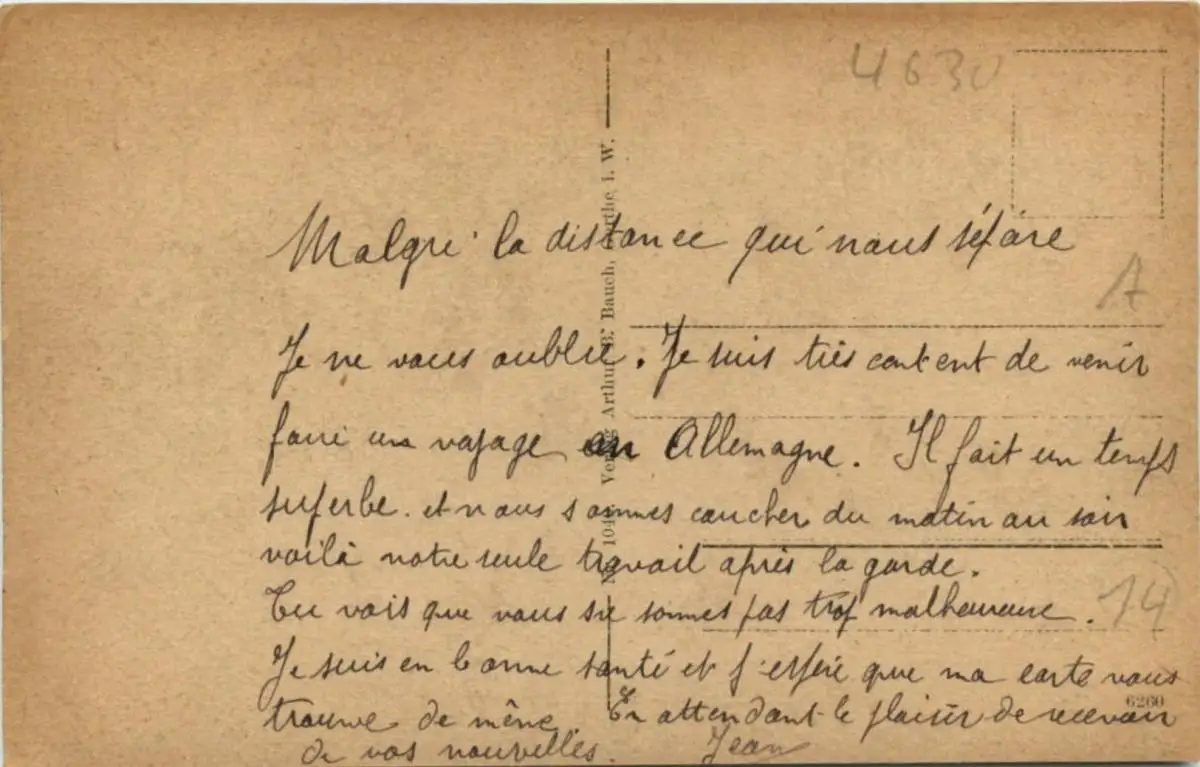 4630
Malgré la distance qui nous sépare
A
Je ne vous oublie. Je suis très content de venir
faire un voyage en Allemagne. Il fait un temps
superbe. et nous sommes coucher du matin au soir
voilà notre seule travail après la garde.
Tu vois que nous se sommes pas trop malheureux.
14
Je suis en bonne santé et j'espère que ma carte vous
trouve de même. En attendant le plaisir de recevoir
de vos nouvelles. Jean
6260
Verlag Arthur B. Bauch, i. W.